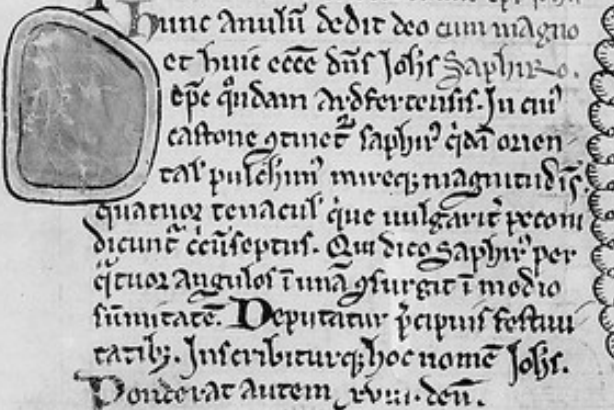 Hunc anulū dedit deo cum magno
et huic eccē dñs Johs Saphiro.
epc qͦndam Ardfertensis. In cuiꝰ
castone ꝯtinet᷑ saphirꝰ qͥdā orien
tal' pulch͛imꝰ mireqꝫ magnitudīs
quatuor tenacul' que uulgarit͛ pecom
dicunt᷑ cͥcūseptus. Qui dico Saphirꝰ per
qͣtuor angulos ī unā ꝯsurgit ī modio
sūmitatē. Deputatur p͛cipuis festiui
tatibꝫ. Inscribiturqꝫ hoc nomē Johs.
Ponderat autem xviii. deñ.